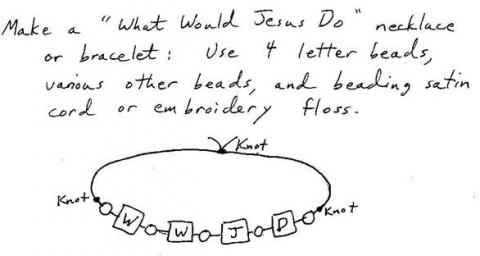 Make a "What Would Jesus Do" necklace
or bracelet: Use 4 letter beads,
various other beads, and beading satin
cord or embroidery floss.
Knot
Knot
W W J D
Knot